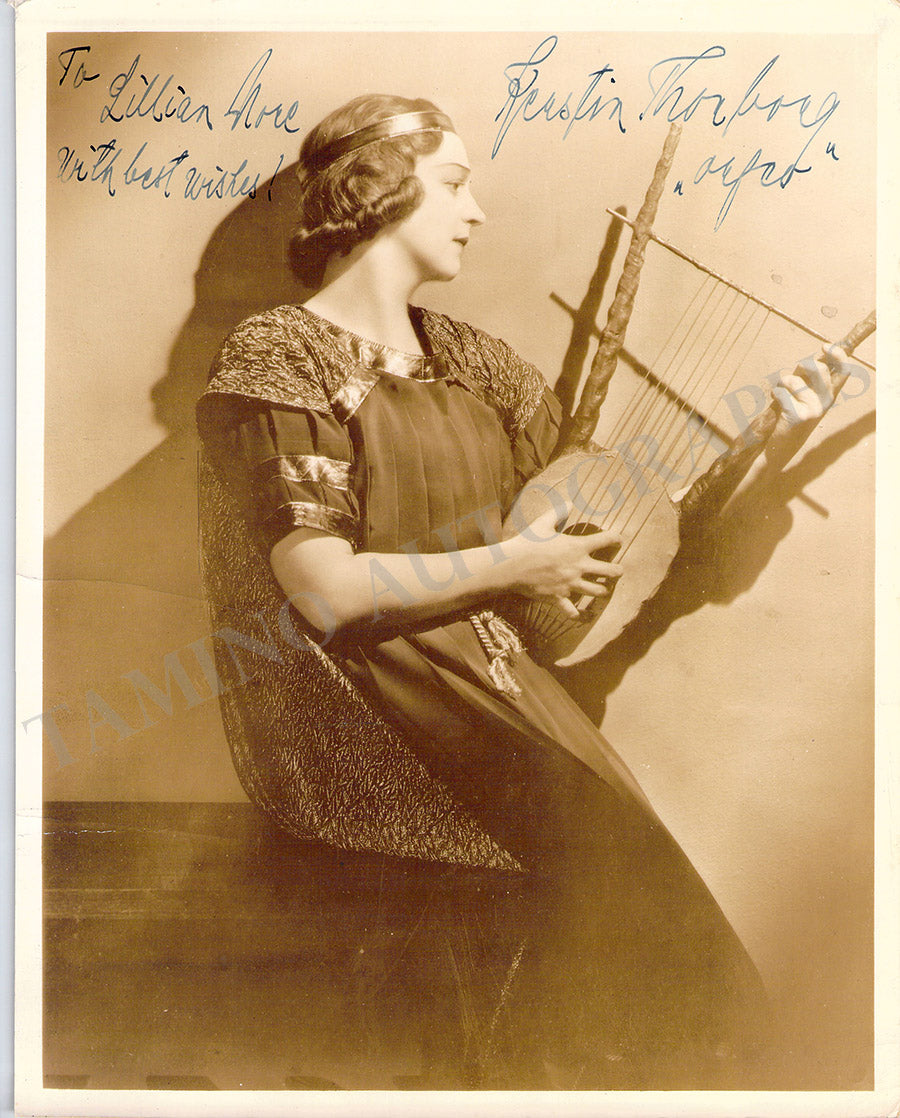 To
Lillian More
With best wishes!
Kerstin Thorborg
„orfeo"
TAMINO AUTOGRAPHS